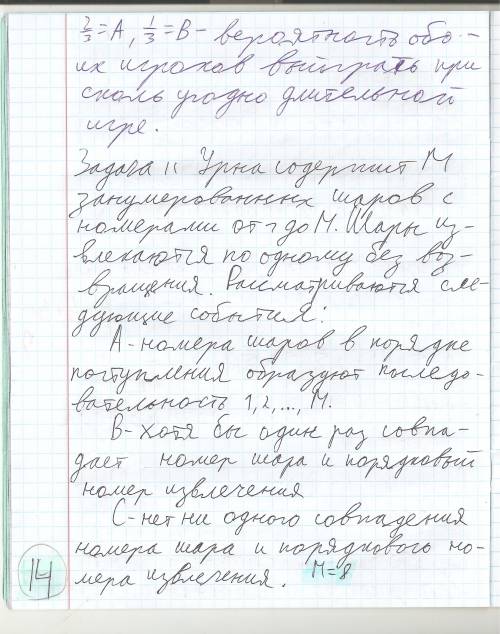 2/3 = A, 1/3 = B - вероятность обо-
их игроков выиграть при
сколь угодно длительной
игре.
Задача 11 Урна содержит M
занумерованных шаров с
номерами от 1 до M. Шары из-
влекаются по одному без воз-
вращения. Рассматриваются сле-
дующие события:
A - номера шаров в порядке
поступления образуют последо-
вательность 1, 2, ..., M.
B - хотя бы один раз совпа-
дает номер шара и порядковый
номер извлечения
C - нет ни одного совпадения
номера шара и порядкового но-
мера извлечения. M = 8
14